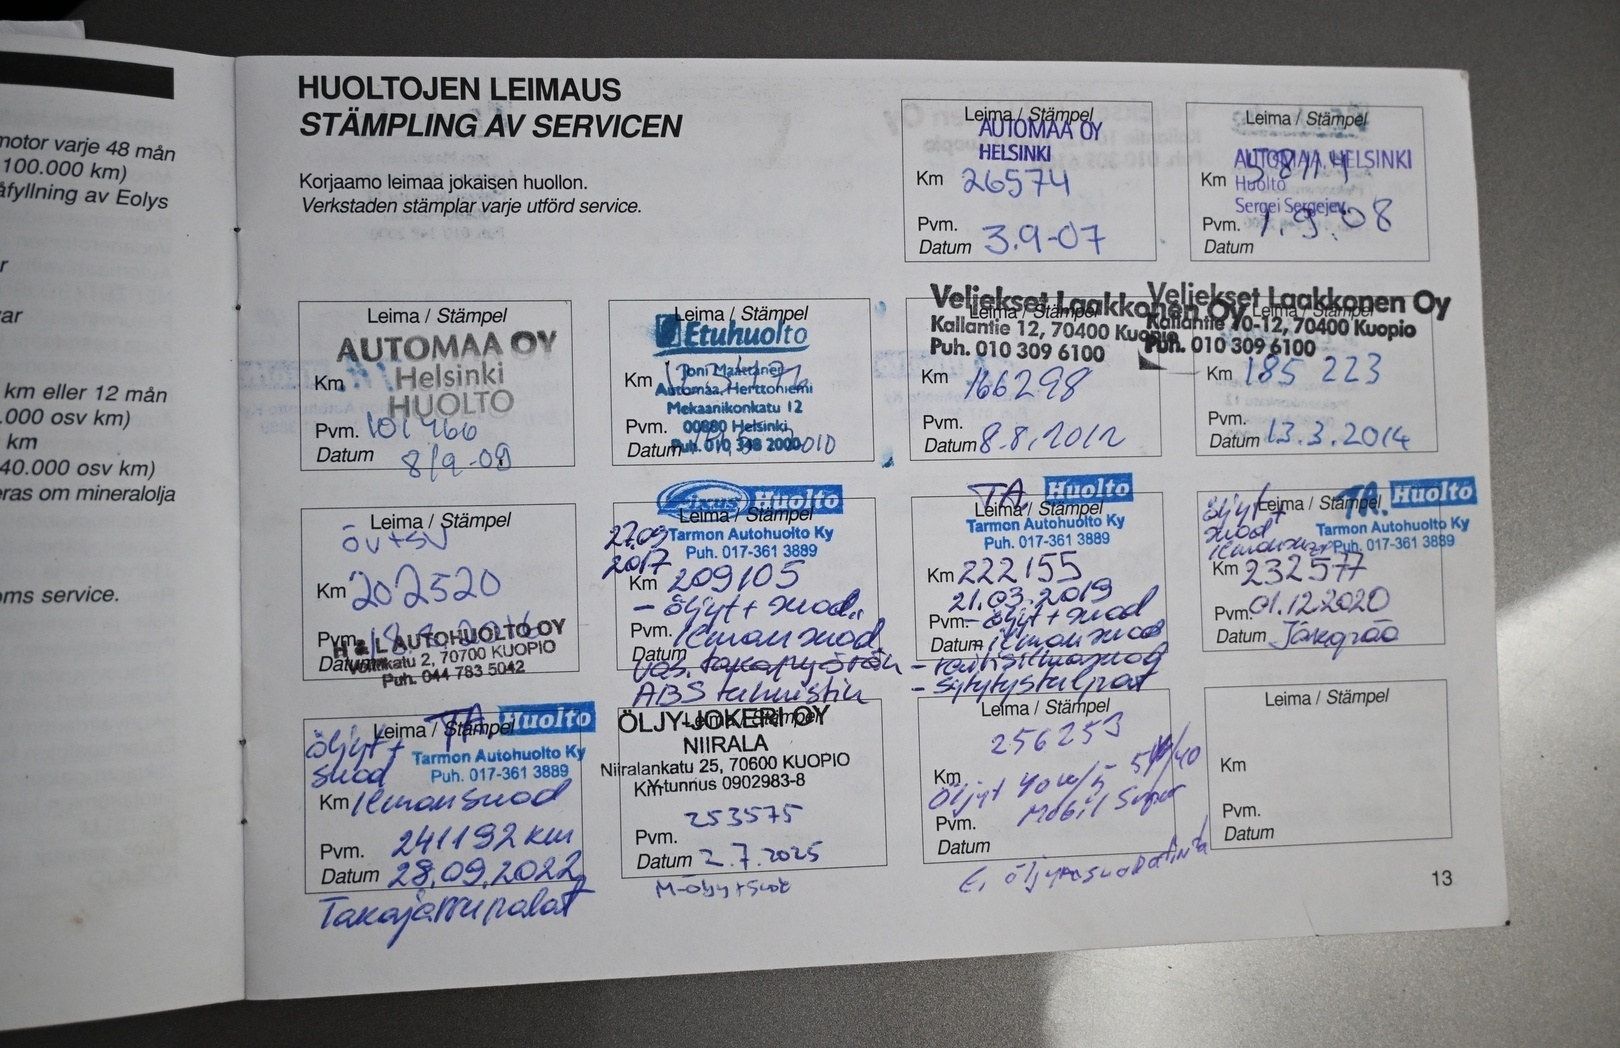 motor varje 48 mån
100.000 km)
åfyllning av Eolys
r
var
km eller 12 mån
.000 osv km)
km
40.000 osv km)
eras om mineralolja
oms service.
HUOLTOJEN LEIMAUS
STÄMPLING AV SERVICEN
Korjaamo leimaa jokaisen huollon.
Verkstaden stämplar varje utförd service.
Leima / Stämpel
AUTOMAA OY
HELSINKI
Km 26574
Pvm.
Datum 3.9-07
Leima / Stämpel
AUTOMAA, HELSINKI
Km
Huolto
Sergei Sergejev
Pvm. 1.9.08
Datum
Leima / Stämpel
AUTOMAA OY
Helsinki
Km
HUOLTO
Pvm. 101466
Datum 8/9-09
Leima / Stämpel
Etuhuolto
Joni Maattanen
Km
Automaa Herttoniemi
Mekaanikonkatu 12
Pvm. 00880 Helsinki
Datum Puh. 010 348 2000
Veljekset Laakkonen Oy
Leima / Stämpel
Kallantie 12, 70400 Kuopio
Puh. 010 309 6100
Km 166298
Pvm.
Datum 8.8.2012
Veljekset Laakkonen Oy
Leima / Stämpel
Kallantie 10-12, 70400 Kuopio
Puh. 010 309 6100
Km 185 223
Pvm.
Datum 13.3.2014
Leima / Stämpel
ÖV+SV
Km 202520
Pvm.
H & L AUTOHUOLTO OY
Datum
Volttikatu 2, 70700 KUOPIO
Puh. 044 783 5042
Fixus Huolto
Leima / Stämpel
27.09 Tarmon Autohuolto Ky
2017 Puh. 017-361 3889
Km 209105
- öljyt + suod.
Pvm. ilmansuod
Datum
vas. takapyörän
ABS tunnistin
TA. Huolto
Leima / Stämpel
Tarmon Autohuolto Ky
Puh. 017-361 3889
Km 222155
21.03.2019
Pvm. - öljyt + suod
Datum ilmansuod
- raitisilmasuod
- sytytystulpat
TA. Huolto
öljyt + Leima / Stämpel
suod Tarmon Autohuolto Ky
ilmansuod Puh. 017-361 3889
Km 232577
Pvm. 01.12.2020
Datum Jakopää
TA. Huolto
Leima / Stämpel
öljyt + Tarmon Autohuolto Ky
suod Puh. 017-361 3889
Km ilmansuod
Pvm. 241192 km
Datum 28.09.2022
Takajarrupalat
ÖLJY-JOKERI OY
Leima / Stämpel
NIIRALA
Niiralankatu 25, 70600 KUOPIO
Km Y-tunnus 0902983-8
253575
Pvm.
Datum 2.7.2025
M-öljy+suod
Leima / Stämpel
256253
Km
Öljyt 40w/5 5W/40
Mobil Super
Pvm.
Datum
Ei öljynsuodatinta
Leima / Stämpel
Km
Pvm.
Datum
13